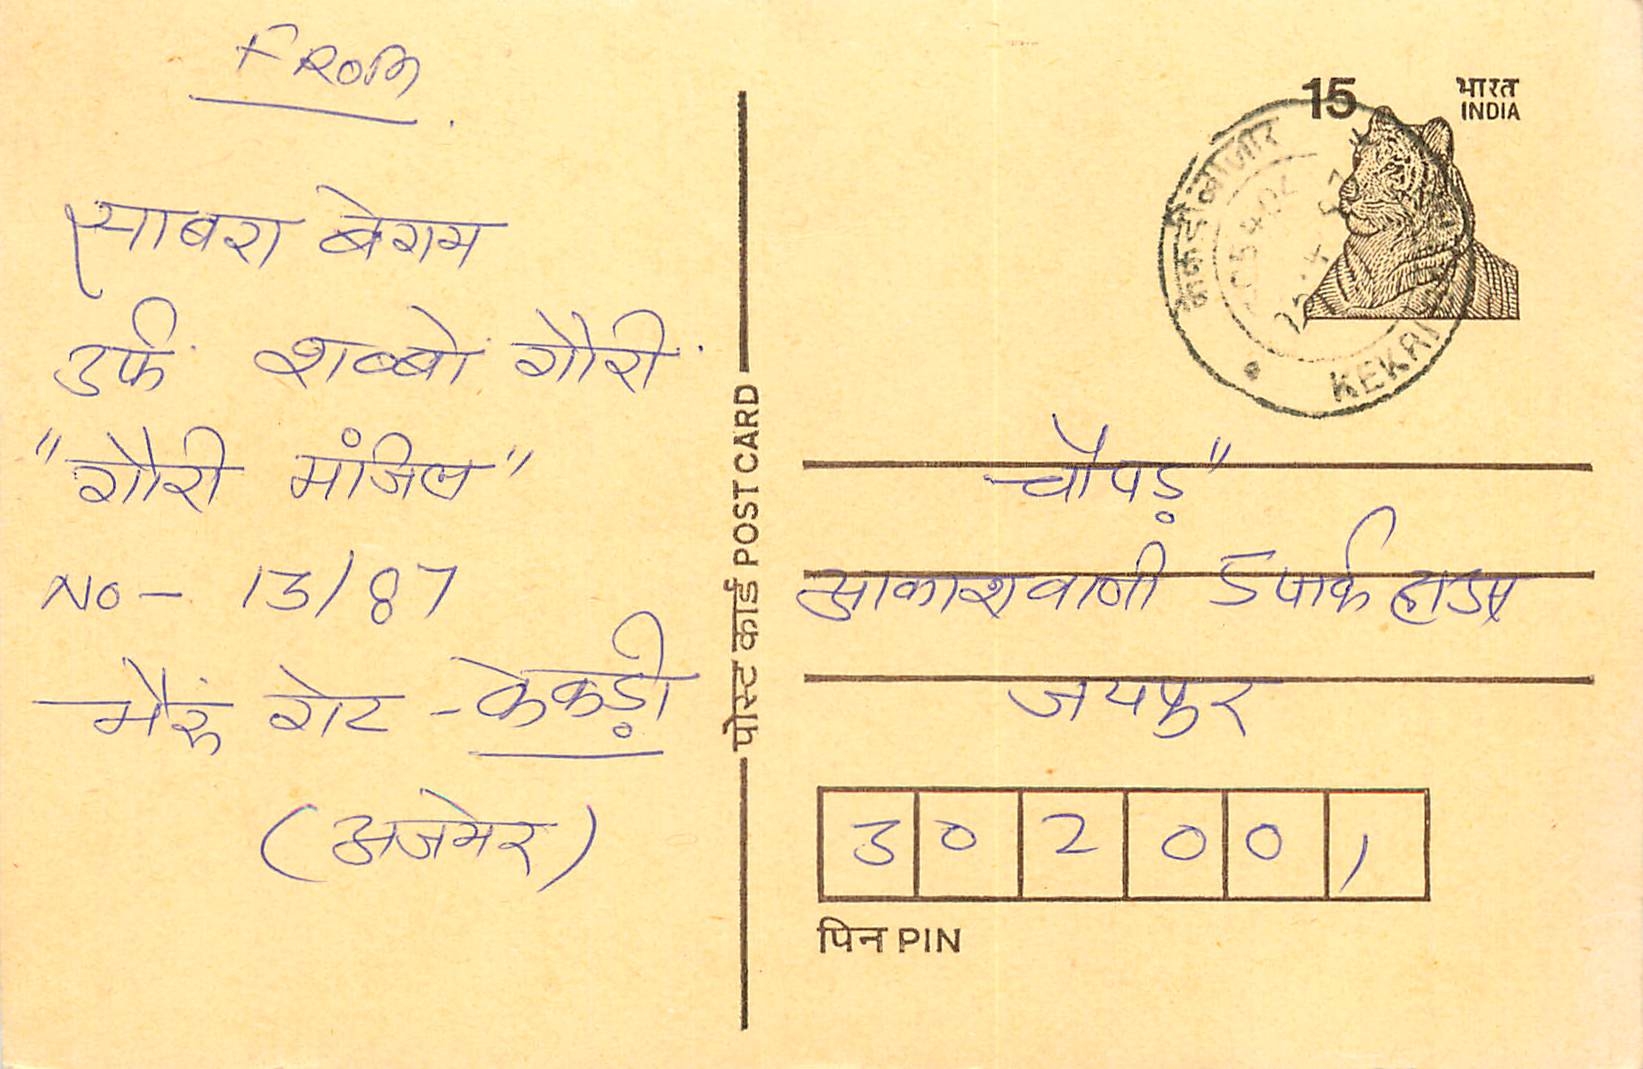 From
साबरा बेगम
उर्फ शब्बो गौरी
"गौरी मंजिल"
No- 13/87
भैरूं गेट - केकड़ी
(अजमेर)
पोस्ट कार्ड POST CARD
15
भारत
INDIA
KEKRI
चौपड़"
आकाशवाणी 5 पार्क हाउस
जयपुर
302001
पिन PIN